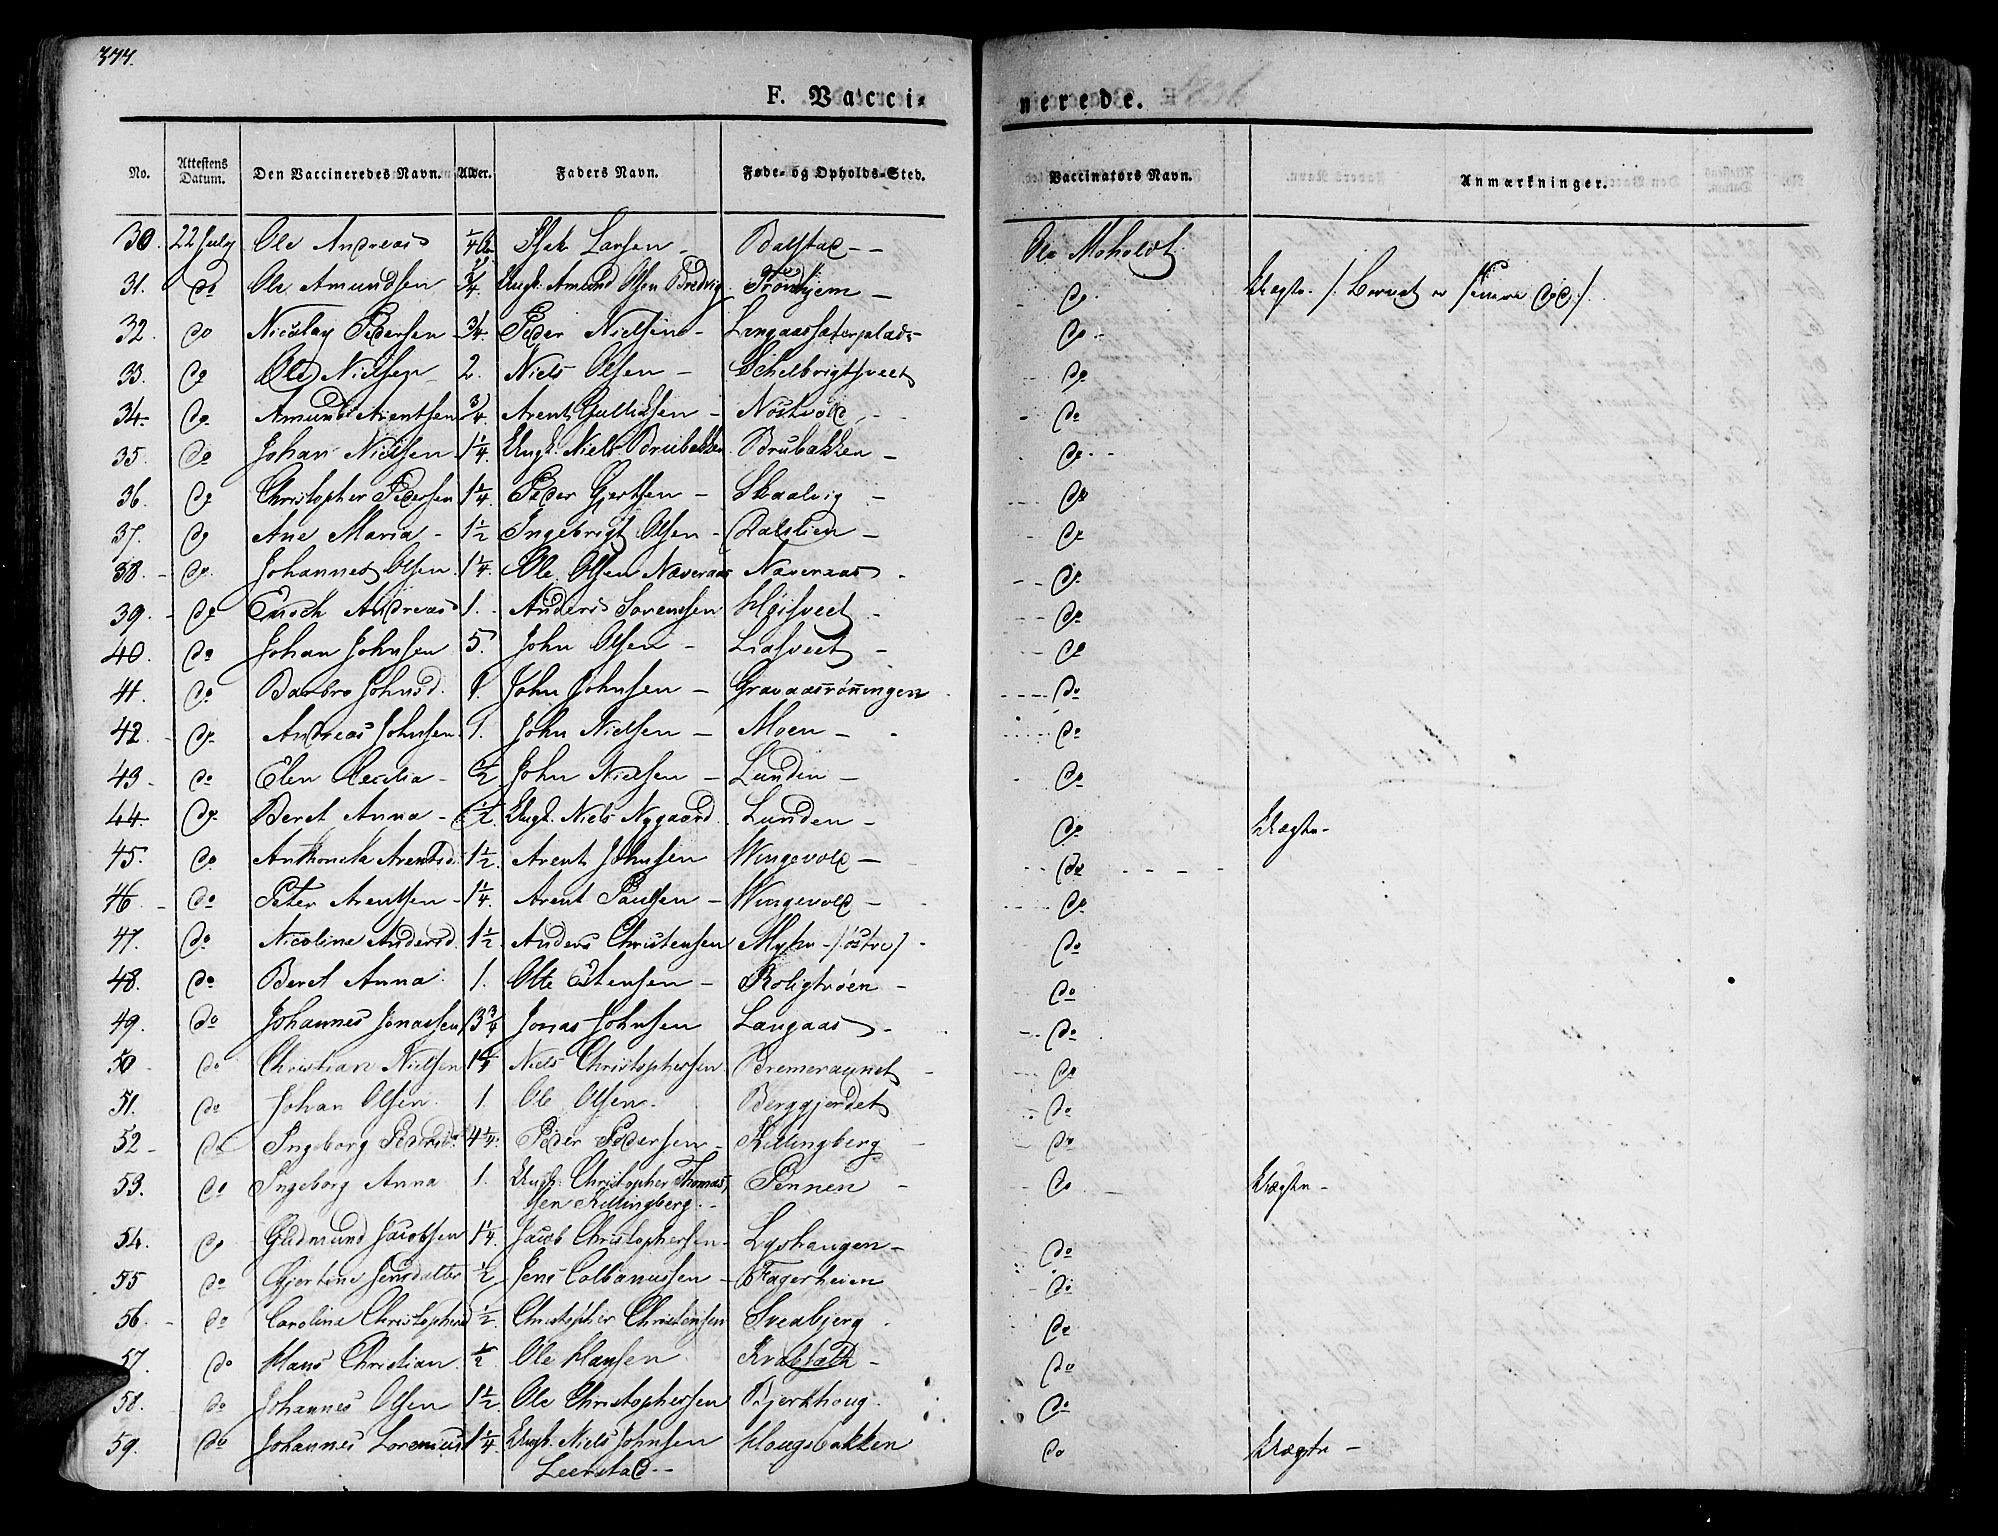 377.
F. Vacci-
nerede.
No. Attestens Datum. Den Vaccineredes Navn. Alder. Faders Navn. Føde- og Opholds-Sted. Vaccinators Navn. Anmærkninger.
30. 22 July Ole Andreas Isak Larsen - Balstad - - Ole Moholdt
31. do Ole Amundsen 3/4. Ungk. Amund Olsen Tronhjem - do Uægte. /: Barnet er senere død :/
32. do Nicolay Pedersen 3/4. Peder Nielsen - Langaassæterplads - do
33. do Ole Nielsen 2. Niels Olsen - Schelbrigtsveet do
34. do Amund Arentsen 3/4. Arent - Nøstvold - do
35. do Johan Nielsen 1 1/4. Ungk. Niels Brubakken Brubakken - do
36. do Christopher Pedersen 1 1/4. Peder Gjertsen - Skaalvig - do
37. do Ane Maria - 1 1/2 Ingebrigt Olsen - Dalslien - do
38. - do Johannes Olsen 1 1/4. Ole Olsen Naveraas Naveraas - do
39. - do Enoch Andreas 1. Anders Sorensen Høisveet - do
40. do Johan Johnsen 5. John Olsen - Liasveet - do
41. do Barbro Johnsd. 1. John Johnsen - Gravaasrönningen do
42. do Andreas Johnsen 1. John Nielsen - Moen - do
43. do Elen Cecilia - 1/2 John Nielsen - Lunden - do
44. do Beret Anna - 1/2 Ungk. Niels Nygaard Lunden - do Uægte -
45. do Anthonetta Arentsd. 1 1/2. Arent Johnsen Wingevold - do
46. - do Peter Arentsen - 1 1/4. Arent Paulsen - Wingevold - do
47. do Nicoline Andersd. 1 1/2. Anders Christensen Myhr - /: östre :/ do
48. do Beret Anna 1. Ole Estensen - Roligtröen - do
49. do Johannes Jonassen 3 3/4 Jonas Johnsen Langaas - do
50 - do Christian Nielsen 1 1/4 Niels Christophersen Bremeraunet - do
51. do Johan Olsen. 1. Ole Olsen. Berggjerdet do
52 - do Ingeborg Pedersd. 4 1/4. Peder Pedersen - Killingberg - do
53. do Ingeborg Anna 1. Ungk. Christopher Thomas- Pennen - do Uægte -
sen Killingberg. -
54. do Gudmund Jacobsen 1 1/4. Jacob Christophersen - Lyshaugen - do
55 do Gjertine Jensdatter 1/2 Jens Colbanussen - Fagerheien do
56. - do Carolina Christophersd 1/2. Christopher Christensen Sveabjerg. do
57. do Hans Christian. 1/2 Ole Hansen. - do
58. do Johannes Olsen 1 1/2. Ole Christophersen Bjerkhoug. do
59. do Johannes Lorenius 1 1/4. Ungk. Niels Johnsen Hougsbakken do Uægte -
Leerstad. -